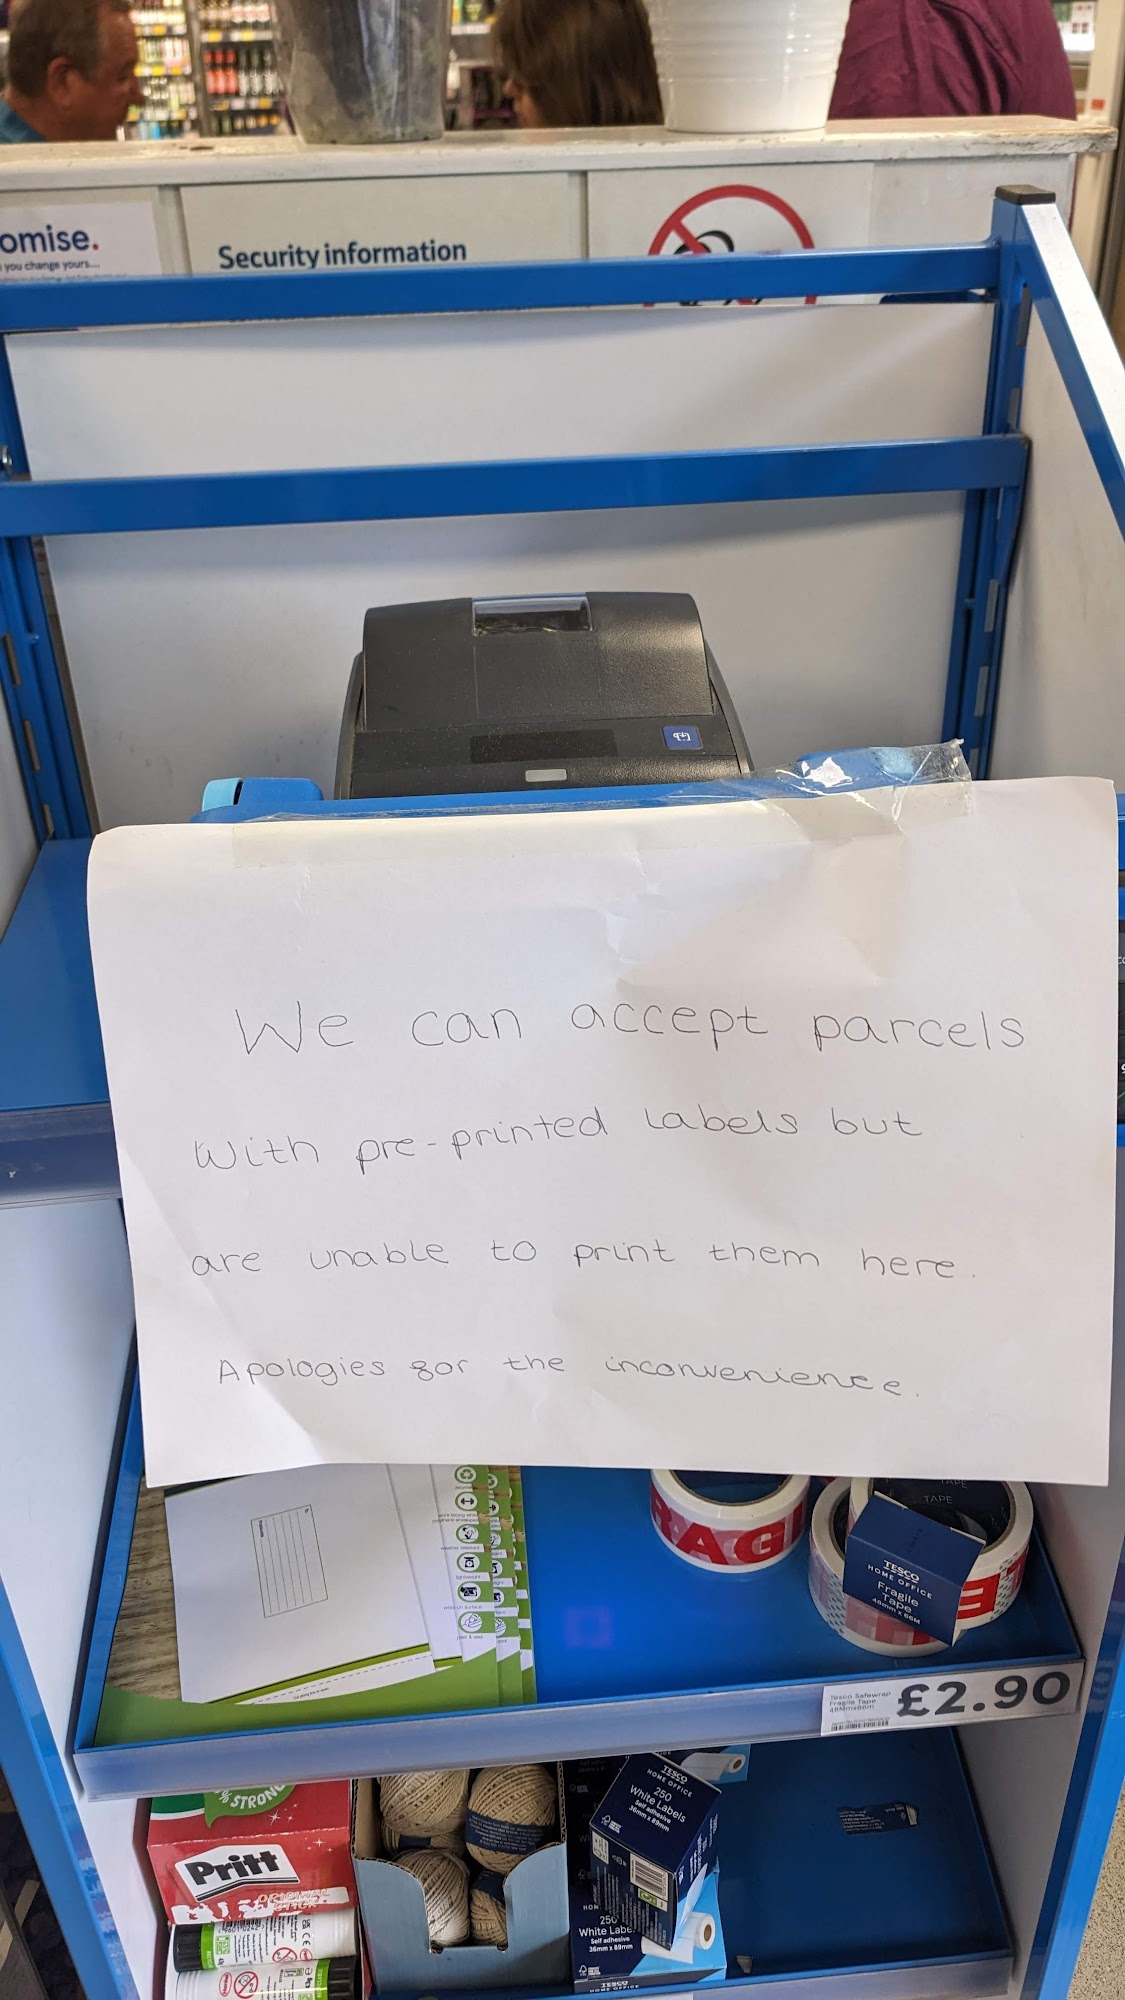 omise.
you change yours...
Security information
We can accept parcels
With pre-printed labels but
are unable to print them here.
Apologies for the inconvenience.
FRAG
TAPE
TAPE
TESCO
HOME OFFICE
Fragile
Tape
48mm x 66M
E
Tesco Safewrap
Fragile Tape
£2.90
% STRONG
Pritt
ORIGINAL
TESCO
HOME OFFICE
250
White Labels
Self adhesive
36mm x 89mm
250
White Labels
Self adhesive
36mm x 89mm
TESCO
HOME OFFICE